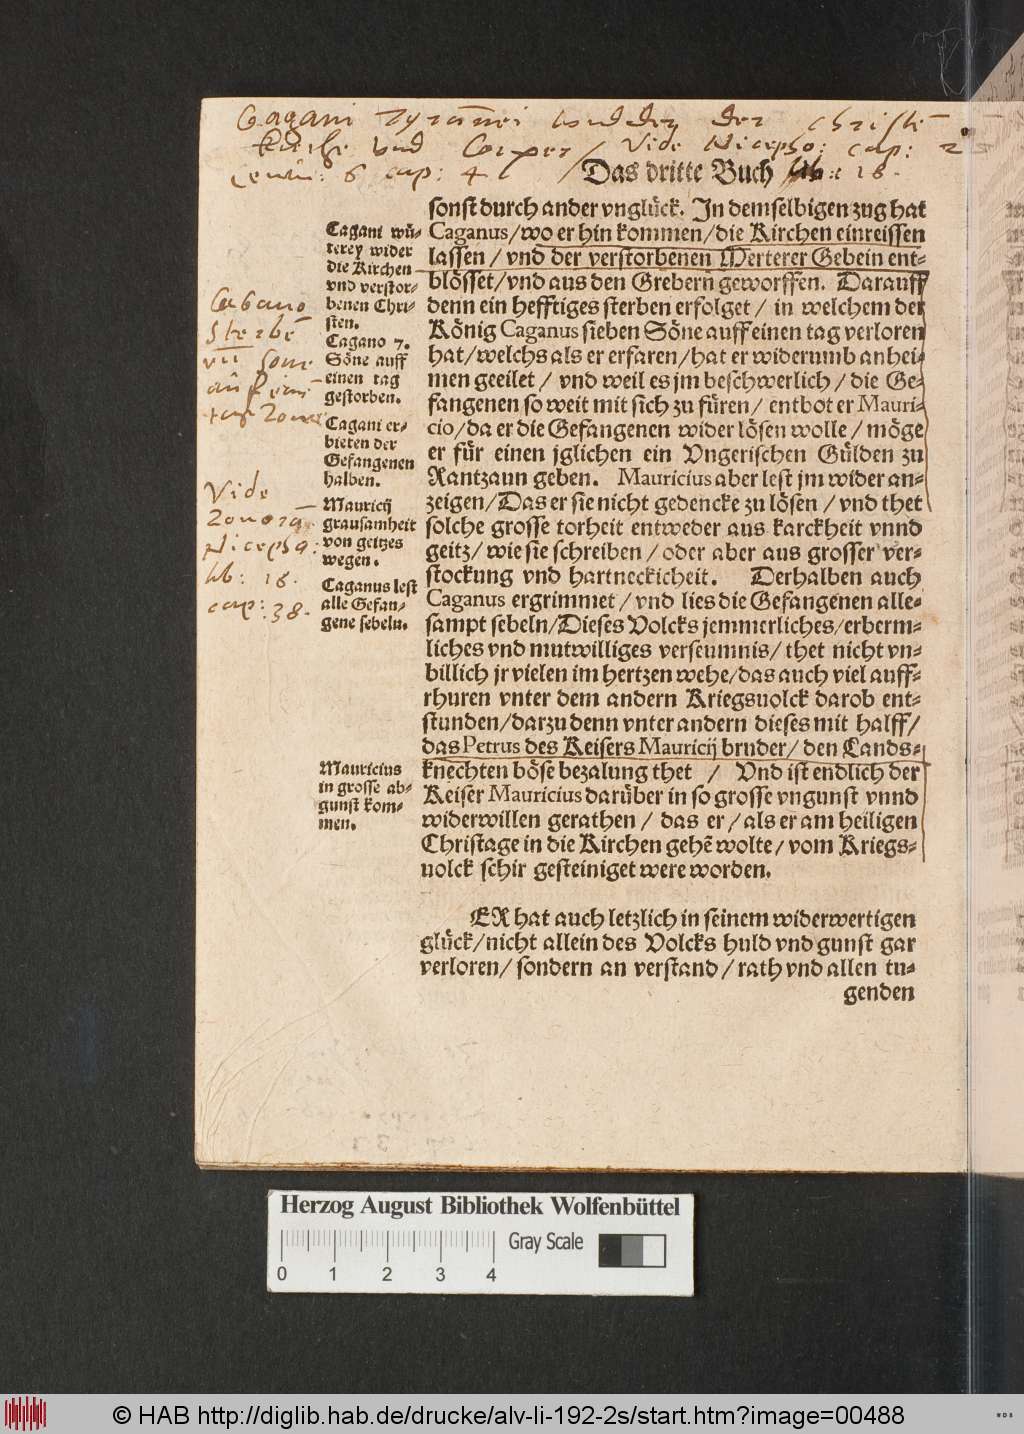 Cagani Tyrānei widder der Christē
Kirche vnd Corper / Vide Nicepho: cap:
6 cap: 41 / Das dritte Buch lib: 18.
sonst durch ander vnglück. In demselbigen zug hat
Caganus/wo er hin kommen/die Kirchen einreissen
lassen/ vnd der verstorbenen Merterer Gebein ent-
blösset/vnd aus den Grebern geworffen. Darauff
denn ein hefftiges sterben erfolget / in welchem der
König Caganus sieben Söne auff einen tag verloren
hat/welchs als er erfaren/hat er widerumb anhei-
men geeilet / vnd weil es jm beschwerlich / die Ge-
fangenen so weit mit sich zu füren / entbot er Mauri-
cio/da er die Gefangenen wider lösen wolle / möge
er für einen jglichen ein Vngerischen Gülden zu
Rantzaun geben. Mauricius aber lest jm wider an-
zeigen/Das er sie nicht gedencke zu lösen / vnd thet
solche grosse torheit entweder aus karckheit vnnd
geitz/ wie sie schreiben / oder aber aus grosser ver-
stockung vnd hartneckicheit. Derhalben auch
Caganus ergrimmet / vnd lies die Gefangenen alle-
sampt sebeln/Dieses Volcks jemmerliches/erberm-
liches vnd mutwilliges verseumnis/ thet nicht vn-
billich jr vielen im hertzen wehe/das auch viel auff-
rhuren vnter dem andern Kriegsuolck darob ent-
stunden/darzu denn vnter andern dieses mit halff/
das Petrus des Keisers Mauricij bruder/ den Lands-
knechten böse bezalung thet / Vnd ist endlich der
Keiser Mauricius darüber in so grosse vngunst vnnd
widerwillen gerathen / das er / als er am heiligen
Christage in die Kirchen gehē wolte/ vom Kriegs-
uolck schir gesteiniget were worden.
ER hat auch letzlich in seinem widerwertigen
glück/nicht allein des Volcks huld vnd gunst gar
verloren/ sondern an verstand / rath vnd allen tu-
genden
Cagani wü-
terey wider
die Kirchen
vnd verstor-
benen Chri-
sten.
Cagano 7.
Söne auff
einen tag
gestorben.
Cagani er-
bieten der
Gefangenen
halben.
Mauricij
grausamheit
von geitzes
wegen.
Caganus lest
alle Gefan-
gene sebeln.
Mauricius
in grosse ab-
gunst kom-
men.
Cagano
Sterbē
vii Sone
Vide
Zonorā
Nicepho:
lib: 18.
cap: 38.
Herzog August Bibliothek Wolfenbüttel
Gray Scale
0 1 2 3 4
© HAB http://diglib.hab.de/drucke/alv-li-192-2s/start.htm?image=00488